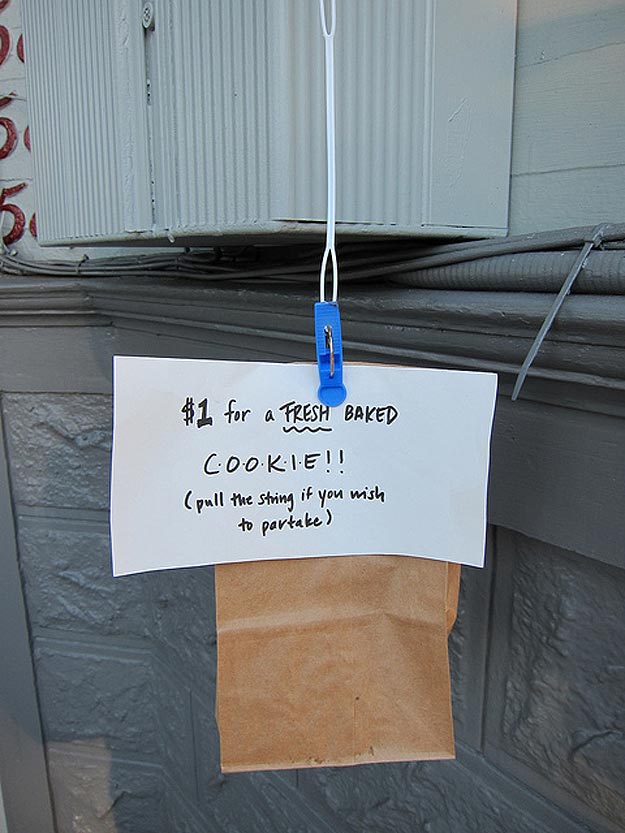 $1 for a FRESH BAKED
C·O·O·K·I·E!!
(pull the string if you wish
to partake)